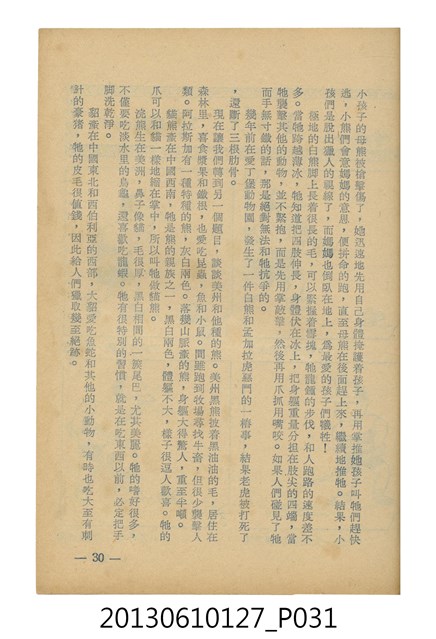 小孩子的母熊被槍擊傷了，她迅速地先用自己身體掩護着孩子，再用掌推她孩子叫牠們趕快
逃，小熊們會意媽媽的意思，便拼命的跑，直至母熊在後面趕上來，繼續地推牠。結果，小
孩們是脫出獵人的視線了，而媽媽也倒臥在地上，爲最愛的孩子們犧牲！
極地的白熊脚上長着很長的毛，可以緊握着雪塊，牠龍鍾的步伐，和人跑路的速度差不
多。當牠路越薄冰，牠知道把四肢伸長，身體伏在冰上，把身軀重量分担在肢尖的四端，當
牠襲擊其他的動物，並不緊抱，而是先用掌敲擊，然後再用爪抓用嘴咬。如果人們碰見了牠
而手無寸鐵的話，那是絕對無法和牠抗爭的。
幾年前在愛丁堡動物園，發生了一件白熊和孟加拉虎惡鬥的一樁事，結果老虎被打死了
，還斷了三根肋骨。
現在讓我們轉到另一個題目，談談美州和他種的熊。美州黑熊披着黑油油的毛，居住在
森林里，喜食漿果和鐵根，也愛吃昆蟲，魚和小鼠。間雖跑到牧場尋找牛畜，但很少襲擊人
類。阿拉斯加有一種特種的熊，灰白兩色。落磯山脈產的熊，身軀大得驚人，重至半噸。
貓熊產在中國西南，牠是熊的親族之一，黑白兩色，體軀不大，樣子很逗人歡喜。牠的
爪可以和貓一樣地蹈在掌中，所以叫牠做貓熊。
浣熊生在美洲，鼻子像豬，毛很厚，黑白相間的一簇尾巴，尤其美麗。牠的嗜好很多，
不僅要吃淡水里的烏龜，還喜歡吃龍蝦。牠有很特別的習慣，就是在吃東西以前，必定把手
脚洗乾淨。
貂產在中國東北和西伯利亞的西部，大貂愛吃魚蛇和其他的小動物，有時也吃大至有刺
針的豪豬，牠的皮毛很值錢，因此給人們獵取幾至絕跡。
— 30 —
20130610127_P031